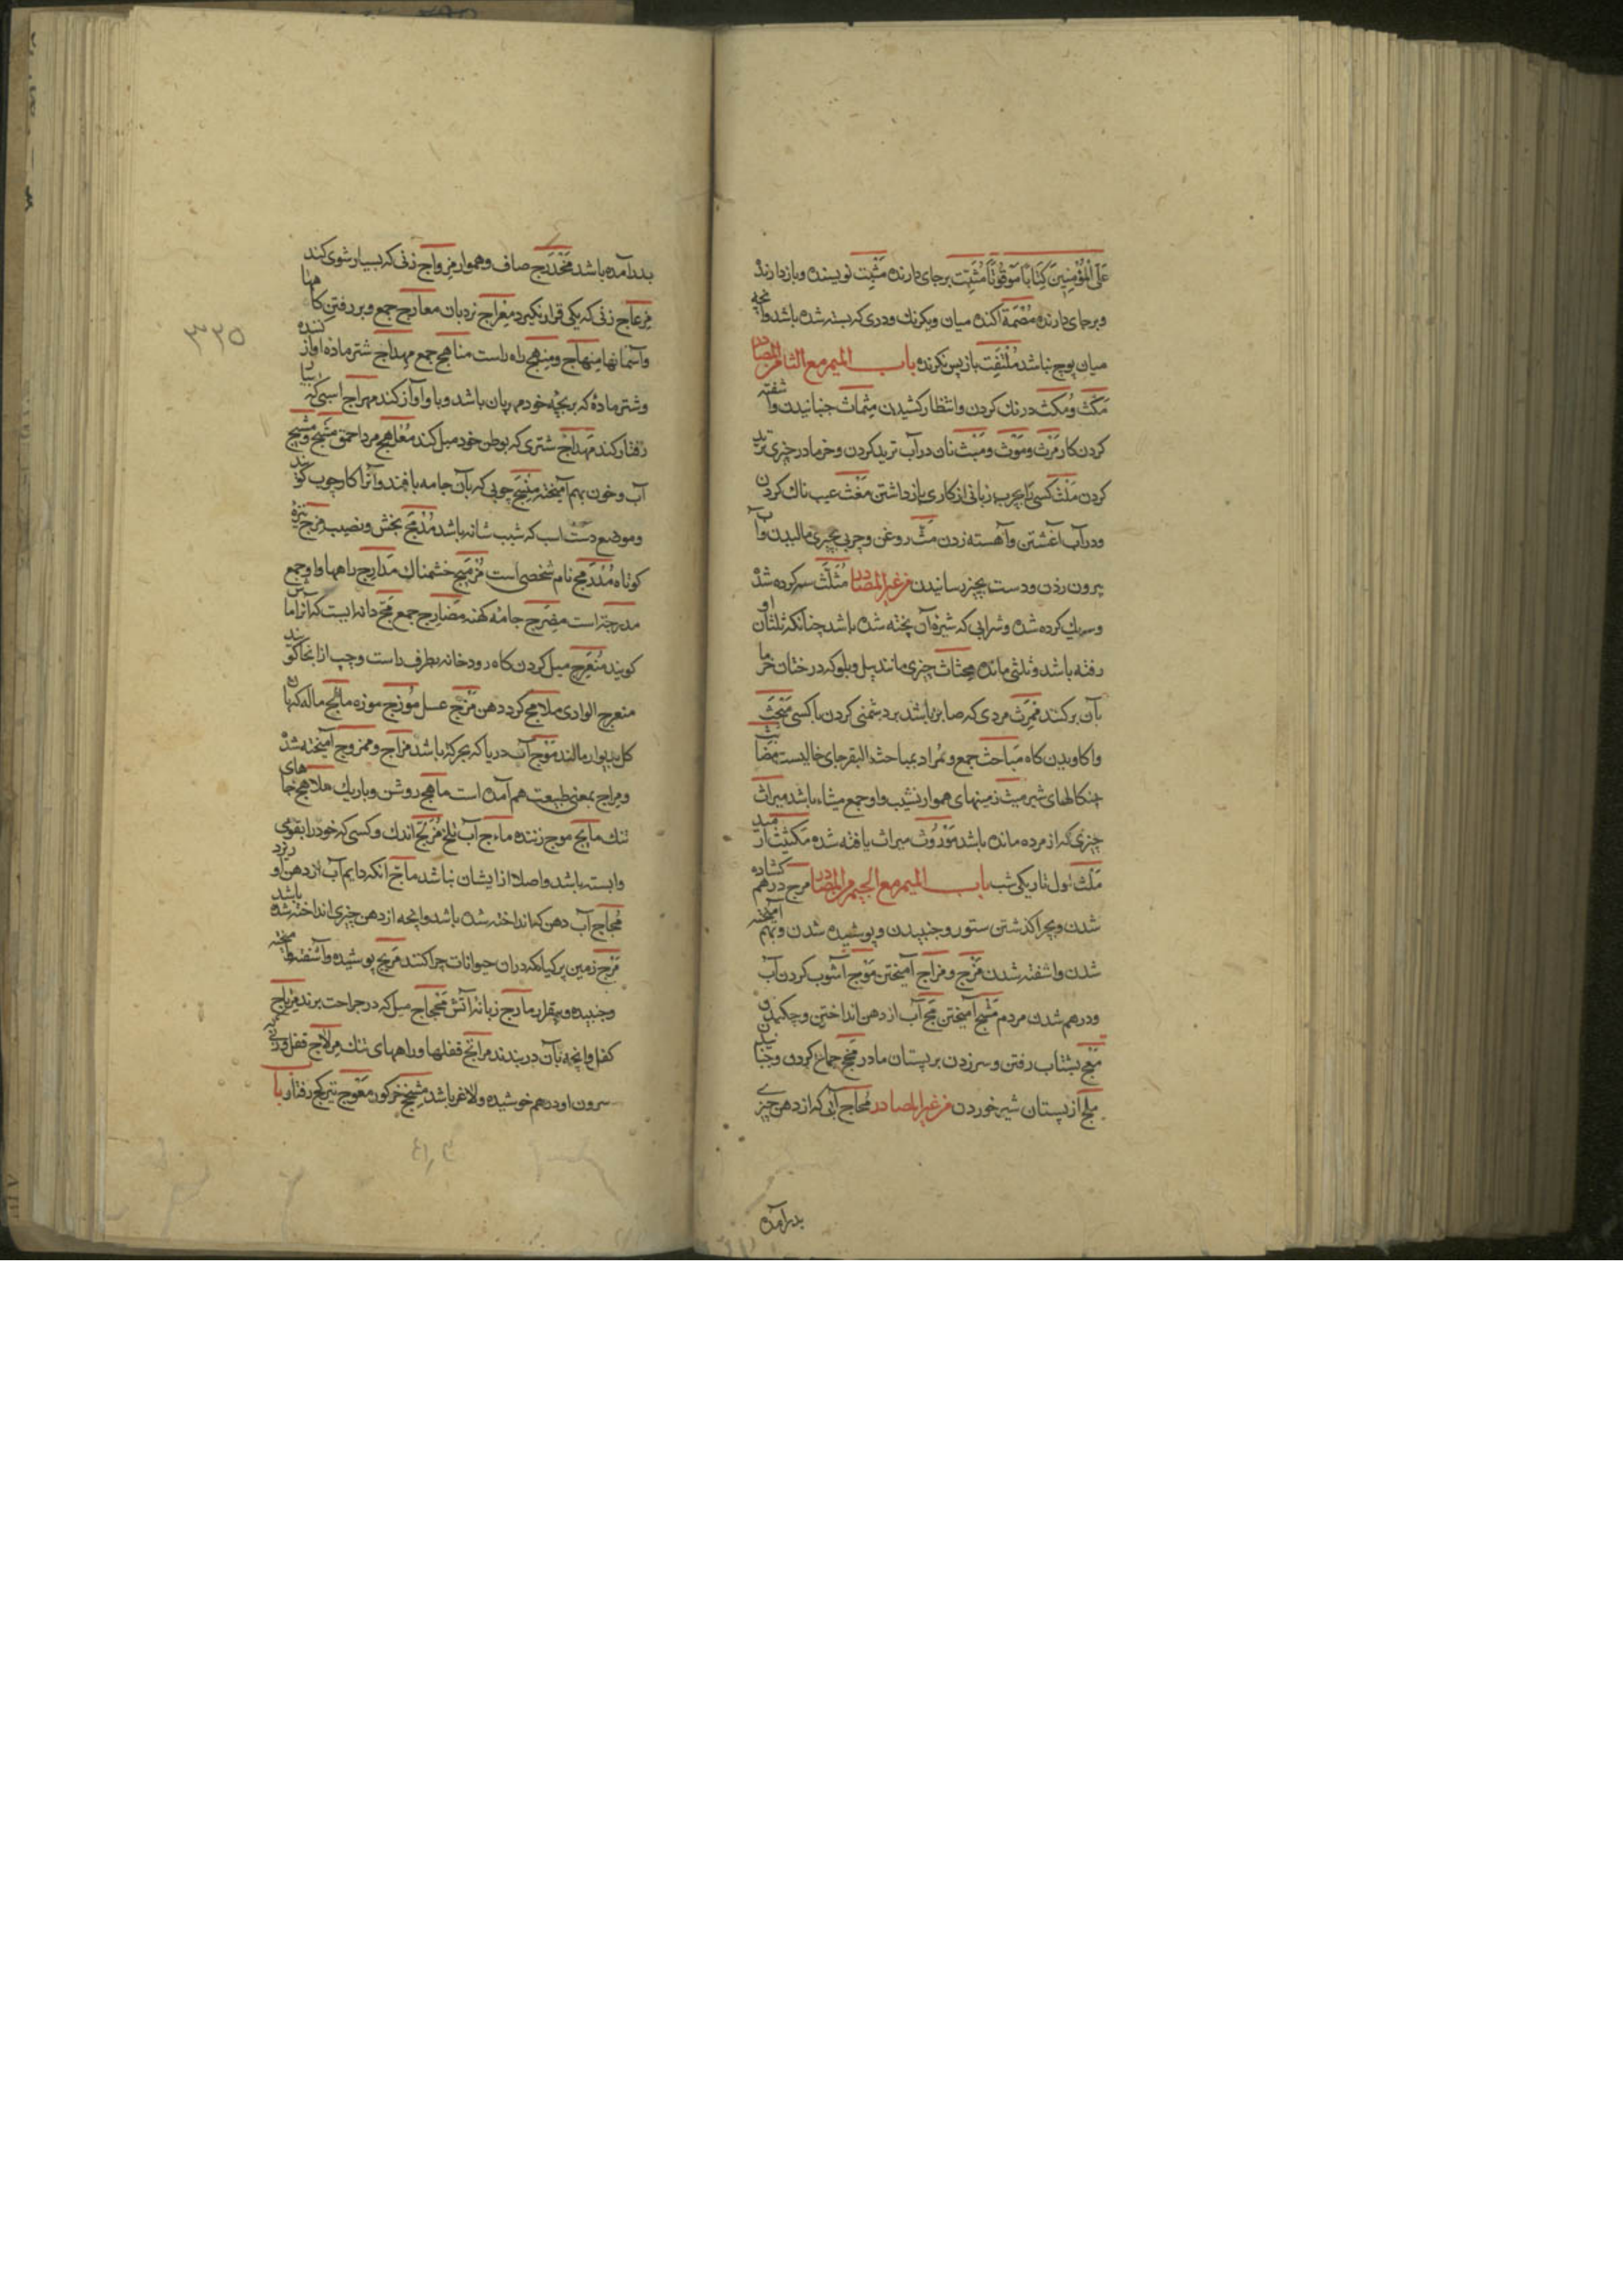 عَلَی الْمُؤْمِنِینَ کِتَابًا مَوْقُوتًا مُثَبِّت برجای دارنده مُثْبِت نویسنده و بازدارنده
و برجای دارنده مُصْمَة آکنده میان و یکرنک و دری که بسته شده باشد وانچه
میان پوچ نباشد مُلْتَفِت بازپس نکرنده باب المیم مع الثا من المصادر
مَکْث و مُکْث درنك کردن و انتظار کشیدن مِثْمَاث جنبانیدن و آشفته
کردن کار مَرْث و مَوْث و مَیْث نان در آب ترید کردن و خرما در چیزی ترید
کردن مَلْث کسی را بچرب زبانی از کاری بازداشتن مَغْث عیب ناك کردن
و در آب آغشتن و آهسته زدن مَثّ روغن و چربی بچیزی مالیدن و آب
بیرون زدن و دست بچیز رسانیدن من غیر المصادر مُثَلَّث سه کرده شده
و سه یك کرده شده و شرابی که شیره آن پخته شده باشد چنانکه ثلثان او
رفته باشد و ثلثی مانده مِجْثَاث چیزی مانند بیل و بلو که درختان خرما
بآن برکنند مَمْرِث مردی که صابر باشد بر دشمنی کردن با کسی مَبْحَث
واکاویدن کاه مَبَاحِث جمع و مُراد بمباحث البقر جای خالیست مَضَابِث
چنکالهای شیر مِیث زمینهای هموار نشیب و او جمع میثاء باشد میراث
چیزی که از مرده مانده باشد مَوْرُوث میراث یافته شده مَکِیث آرمید
مَلَث اول تاریکی شب باب المیم مع الجیم من المصادر مرج درهم کشاده
شدن و بچرا کذشتن ستور و جنبیدن و پوشیده شدن و بهم آمیخته
شدن و اشفته شدن مَزْج و مزاج آمیختن مَوْج آشوب کردن آب
و درهم شدن مردم مَشْج آمیختن مَجّ آب از دهن انداختن و چکیدن
بشتاب رفتن و سر زدن بر پستان مادر جماع کردن و جنبانیدن
ملج از پستان شیر خوردن من غیر المصادر مُجَاج آبی که از دهن چیزی
بدر آمده
۳۲۵
بدرآمده باشد مُخَدْرَج صاف و هموار مِزْواج زنی که بسیار شوی کند
مِزْعَاج زنی که یکی قرار نکیرد مِعْرَاج نردبان معارج جمع و بر رفتن کاهها
و آسمانها مِنْهَاج و مِنْهَج راه راست مناهج جمع مِهْدَاج شتر ماده آواز کننده
و شتر ماده که بر بچه خود مهربان باشد و باو آواز کند مهراج اسبی که بسیار
رفتار کند مِهْدَاج شتری که بوطن خود میل کند مُعَلْهَج مرد احمق مَشْج و مَشِیج
آب و خون بهم آمیخته مِنْسَج چوبی که بآن جامه بافند و آنرا کارچوب کویند
و موضع دست اسب که شیب شانه باشد مُدْمَج بخش و نصیب مزج نیزه
کوتاه مُدَرِّج نام شخصی است مُزْمَج خشمناك مَدَارِج راهها و او جمع
مدرجة است مِضْرَج جامه کهنه مَضَارِج جمع مَجّ دانه ایست که آنرا ماس
کویند مُنْعَرِج میل کردن کاه رودخانه بطرف راست و چپ از انجا کویند
منعرج الوادی ملامج کرد دهن مَزْج عسل مُوزَج موزه مالَج ماله که بآن
کل بدیوار مالند مَوْج آب دریا که بحرکه باشد مزاج و ممزوج آمیخته شده
و مزاج بمعنی طبیعت هم آمده است ماهج روشن و باریك ملاهج جاهای
تنك مایج موج زننده ماءج آب تلخ مُزَلَّج اندك و کسی که خود را بقومی
وابسته باشد و اصلا از ایشان نباشد ماجّ آنکه دایم آب از دهن او ریزد
مُجَاج آب دهن که انداخته شده باشد و انچه از دهن چیزی انداخته شده باشد
مَرْج زمین پر کیاه که در ان حیوانات چرا کنند مریج پوشیده و آشفته و امیخته
و جنبیده و بیقرار مارج زبانه آتش مِحْجَاج میل که در جراحت برند مِزْلاج
کفل و انچه بآن در بندند مزالج قفلها و راههای تنك مِزْلاج قفل و زنی که
سرون او درهم خوشیده و لاغر باشد مِشْحَج خرکور مِعْوَج تیز کج رفتار باب